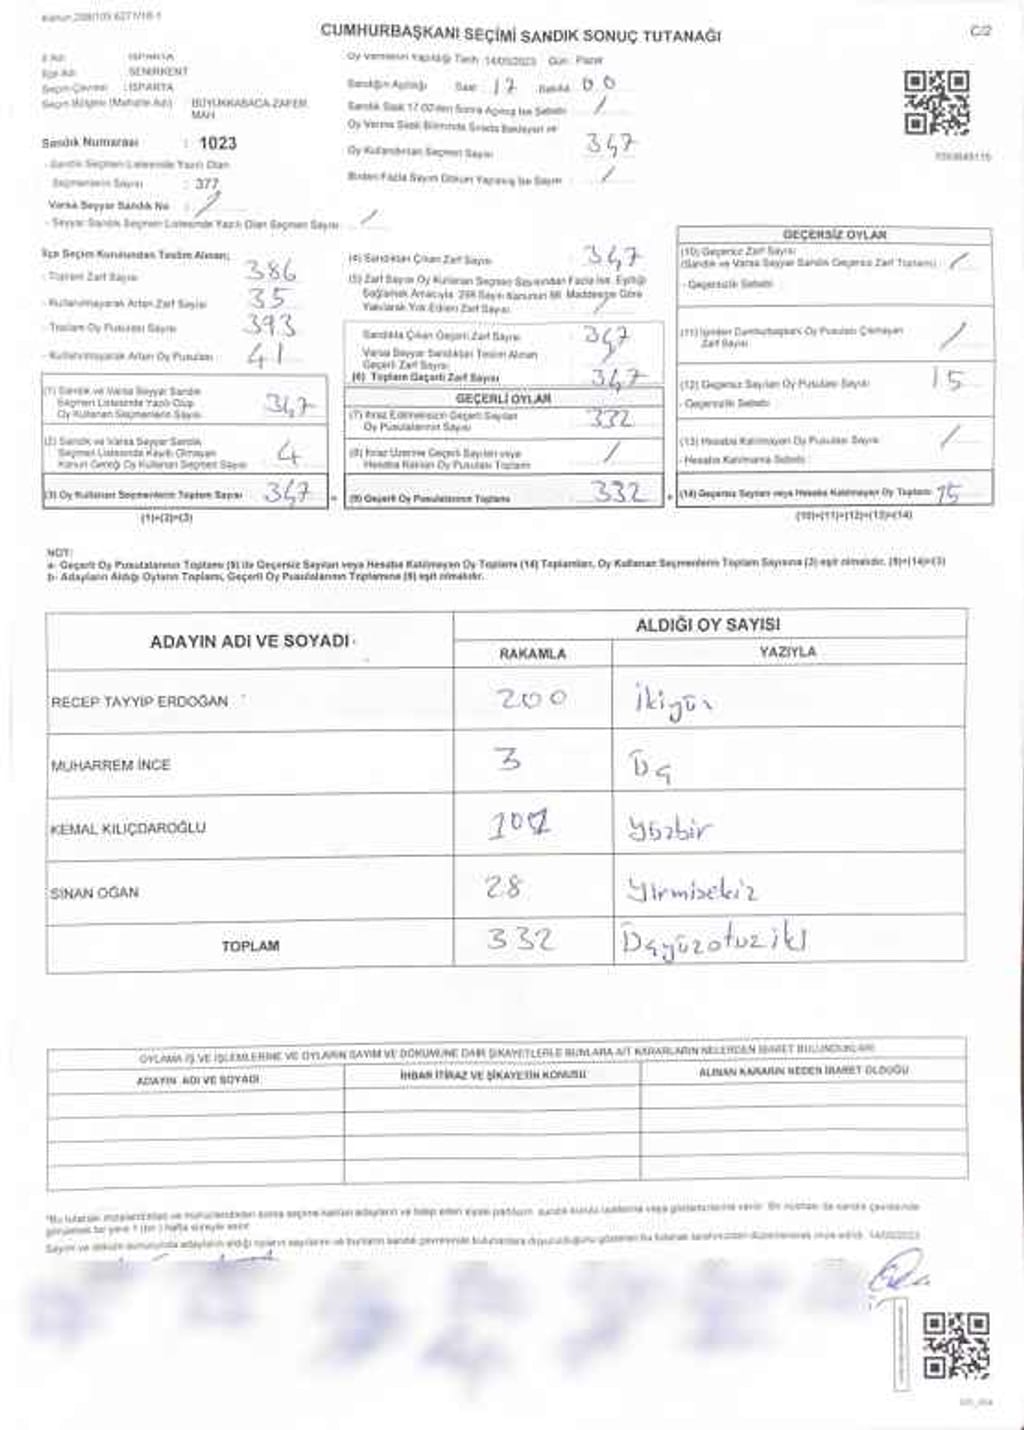 CUMHURBAŞKANI SEÇİMİ SANDIK SONUÇ TUTANAĞI
C/2
İli Adı : ISPARTA
İlçe Adı : SENİRKENT
Seçim Çevresi : ISPARTA
Seçim Bölgesi (Mahalle Adı) BÜYÜKKABACA-ZAFER MAH
Sandık Numarası : 1023
- Sandık Seçmen Listesinde Yazılı Olan
Seçmenlerin Sayısı : 377
Varsa Seyyar Sandık No : /
- Seyyar Sandık Seçmen Listesinde Yazılı Olan Seçmen Sayısı : /
Oy Vermenin Yapıldığı Tarih 14/05/2023 Gün: Pazar
Sandığın Açıldığı Saat : 17 Dakika 00
Sandık Saat 17.00'den Sonra Açılmış İse Sebebi : /
Oy Verme Saati Bitiminde Sırada Bekleyen ve
Oy Kullandırılan Seçmen Sayısı 347
Birden Fazla Sayım Döküm Yapılmış İse Sayısı : /
İlçe Seçim Kurulundan Teslim Alınan;
- Toplam Zarf Sayısı 386
- Kullanılmayarak Artan Zarf Sayısı 35
- Toplam Oy Pusulası Sayısı 393
- Kullanılmayarak Artan Oy Pusulası 41
(1) Sandık ve Varsa Seyyar Sandık
Seçmen Listesinde Yazılı Olup
Oy Kullanan Seçmenlerin Sayısı 347
(2) Sandık ve Varsa Seyyar Sandık
Seçmen Listesinde Kayıtlı Olmayan
Kanun Gereği Oy Kullanan Seçmen Sayısı 4
(3) Oy Kullanan Seçmenlerin Toplam Sayısı 347
(1)+(2)=(3)
(4) Sandıktan Çıkan Zarf Sayısı 347
(5) Zarf Sayısı Oy Kullanan Seçmen Sayısından Fazla İse, Eşitliği
Sağlamak Amacıyla 298 Sayılı Kanunun 98. Maddesine Göre
Yakılarak Yok Edilen Zarf Sayısı /
Sandıkta Çıkan Geçerli Zarf Sayısı 347
Varsa Seyyar Sandıktan Teslim Alınan
Geçerli Zarf Sayısı /
(6) Toplam Geçerli Zarf Sayısı 347
GEÇERLİ OYLAR
(7) İtiraz Edilmeksizin Geçerli Sayılan
Oy Pusulalarının Sayısı 332
(8) İtiraz Üzerine Geçerli Sayılan veya
Hesaba Katılan Oy Pusulası Toplamı /
(9) Geçerli Oy Pusulalarının Toplamı 332
GEÇERSİZ OYLAR
(10) Geçersiz Zarf Sayısı
(Sandık ve Varsa Seyyar Sandık Geçersiz Zarf Toplamı) /
- Geçersizlik Sebebi :
(11) İçinden Cumhurbaşkanı Oy Pusulası Çıkmayan
Zarf Sayısı /
(12) Geçersiz Sayılan Oy Pusulası Sayısı 15
- Geçersizlik Sebebi :
(13) Hesaba Katılmayan Oy Pusulası Sayısı /
- Hesaba Katılmama Sebebi :
(14) Geçersiz Sayılan veya Hesaba Katılmayan Oy Toplamı 15
(10)+(11)+(12)+(13)=(14)
NOT:
a- Geçerli Oy Pusulalarının Toplamı (9) ile Geçersiz Sayılan veya Hesaba Katılmayan Oy Toplamı (14) Toplamları, Oy Kullanan Seçmenlerin Toplam Sayısına (3) eşit olmalıdır. (9)+(14)=(3)
b- Adayların Aldığı Oyların Toplamı, Geçerli Oy Pusulalarının Toplamına (9) eşit olmalıdır.
ADAYIN ADI VE SOYADI
ALDIĞI OY SAYISI
RAKAMLA YAZIYLA
RECEP TAYYİP ERDOĞAN 200 İkiyüz
MUHARREM İNCE 3 Üç
KEMAL KILIÇDAROĞLU 101 Yüzbir
SİNAN OĞAN 28 Yirmisekiz
TOPLAM 332 Üçyüzotuziki
OYLAMA İŞ VE İŞLEMLERİNE VE OYLARIN SAYIM VE DÖKÜMÜNE DAİR ŞİKAYETLERLE BUNLARA AİT KARARLARIN NELERDEN İBARET BULUNDUKLARI
ADAYIN ADI VE SOYADI
İHBAR İTİRAZ VE ŞİKAYETİN KONUSU
ALINAN KARARIN NEDEN İBARET OLDUĞU